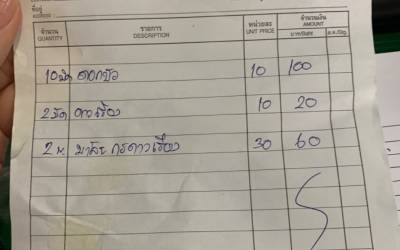 ที่อยู่
จำนวน รายการ หน่วยละ จำนวนเงิน
QUANTITY DESCRIPTION UNIT PRICE AMOUNT
บาท/Baht ส.ต./Stg.
10 ดอกบัว 10 100
2 ดาวเรือง 10 20
2 พ. มาลัย ดาวเรือง 30 60